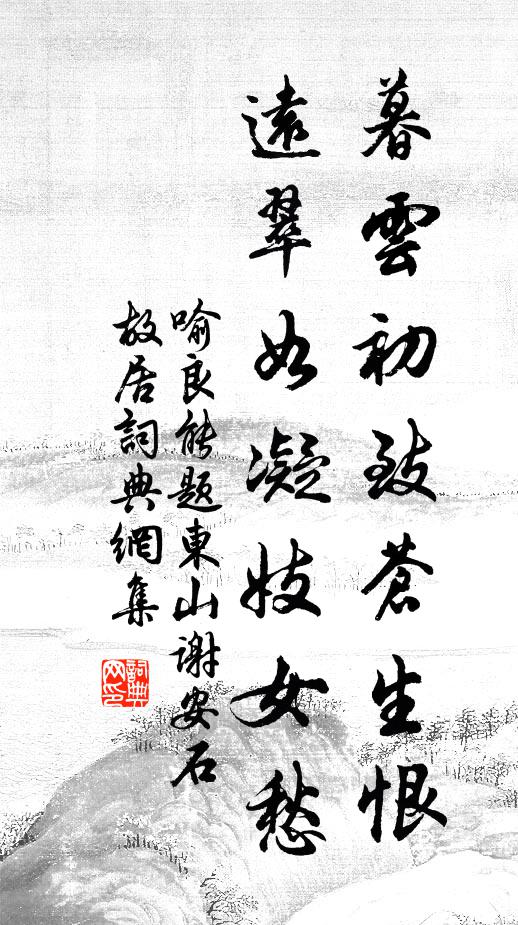 暮雲初致蒼生恨
遠翠如凝妓女愁
喻良能題東山谢安石
故居詞典網集
詞典网印